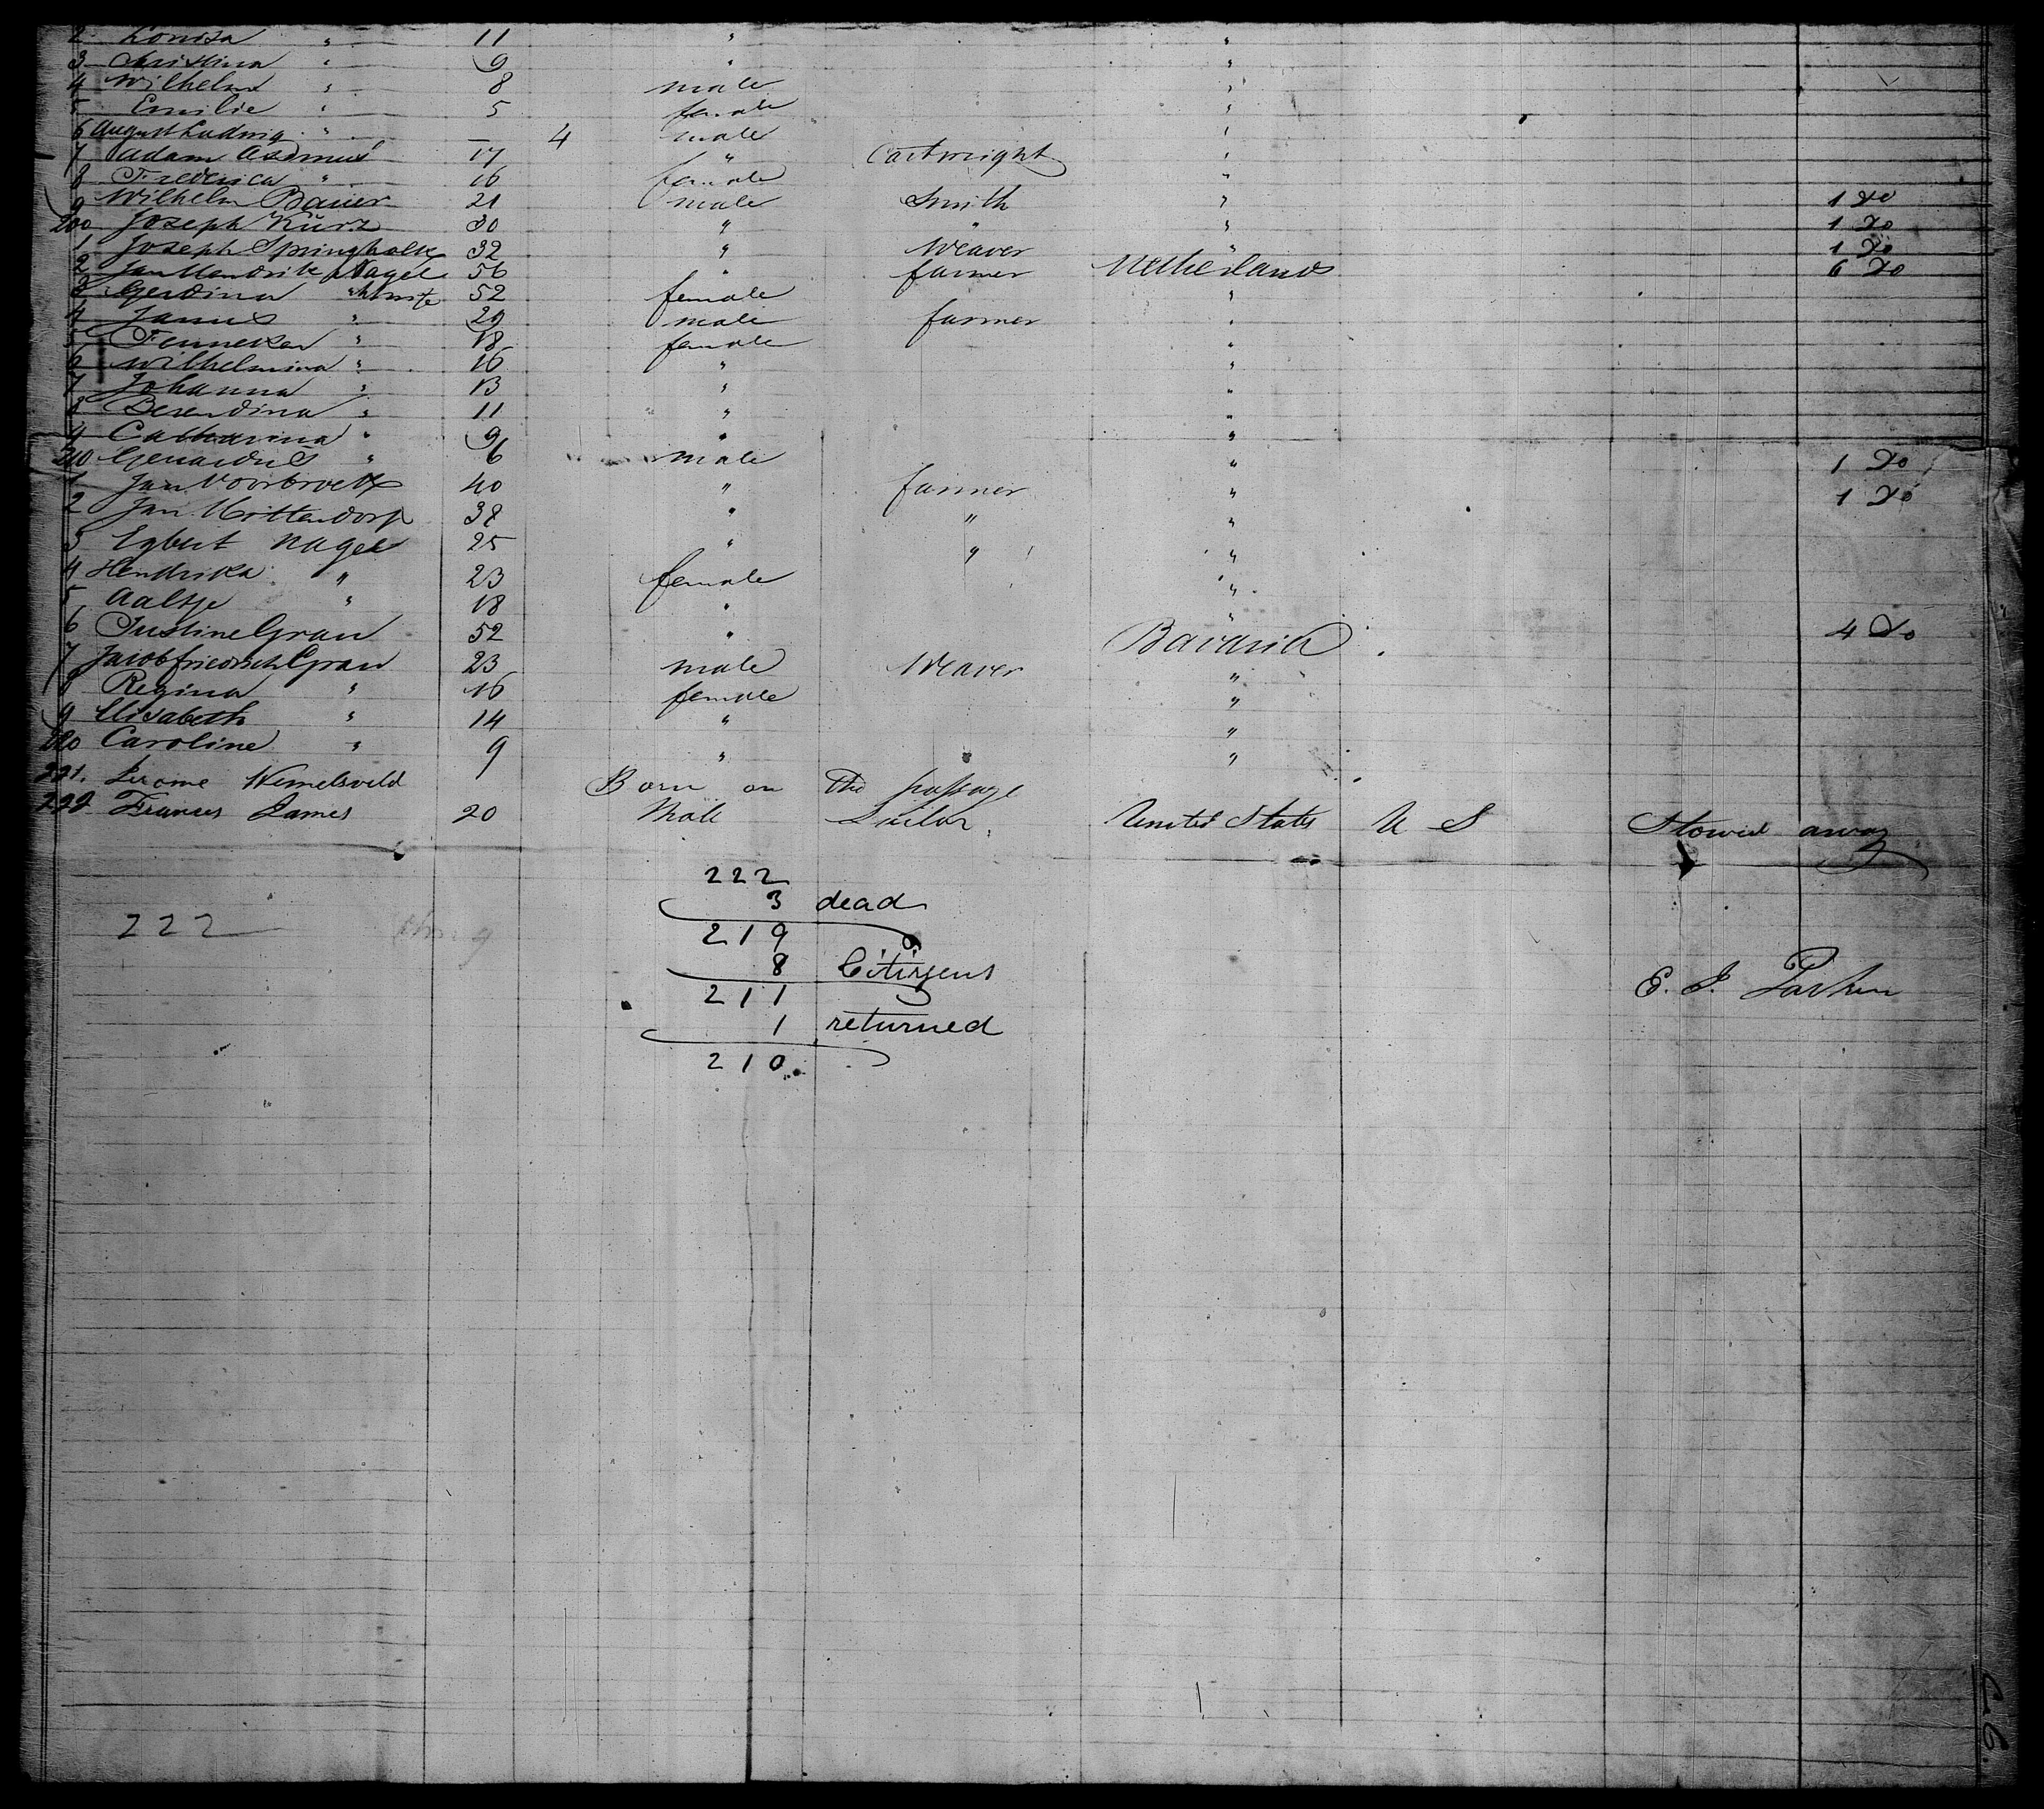 2 Louisa " 11 " "
3 Christina " 9 " "
4 Wilhelm " 8 male "
5 Emilie " 5 female "
6 August Ludwig " — 4 male "
7 Adam Asdmus 17 " Cartwright "
8 Frederica " 16 female "
9 Wilhelm Bauer 21 male Smith " 1 Do
200 Joseph Kürz 30 " " 1 Do
1 Joseph Springholk 32 " Weaver " 1 Do
2 Jan Hendrik Nagel 56 " farmer Netherlands 6 Do
3 Gerdina " 52 female "
4 Jannes " 29 male farmer "
5 Denneken " 18 female "
6 Wilhelmina " 16 " "
7 Johanna " 13 " "
8 Berendina " 11 " "
9 Catharina " 9 " "
210 Gerardus " 6 male " 1 Do
1 Jan Voorbroek 40 " farmer " 1 Do
2 Jan Hottendorp 38 " " "
3 Egbert Nagel 25 " " "
4 Hendrika " 23 female "
5 Aaltje " 18 " "
6 Justine Grau 52 " Bavaria 4 Do
7 Jacob friedrich Grau 23 male Weaver "
8 Regina " 16 female "
9 Elisabeth " 14 " "
220 Caroline " 9 " "
221. Jerome Wemelsveld Born on the passage
222 Frances James 20 Male Sailor United States U S Stowed away
222
3 dead
222
219
8 Citizens
E. J. Parker
211
1 returned
210